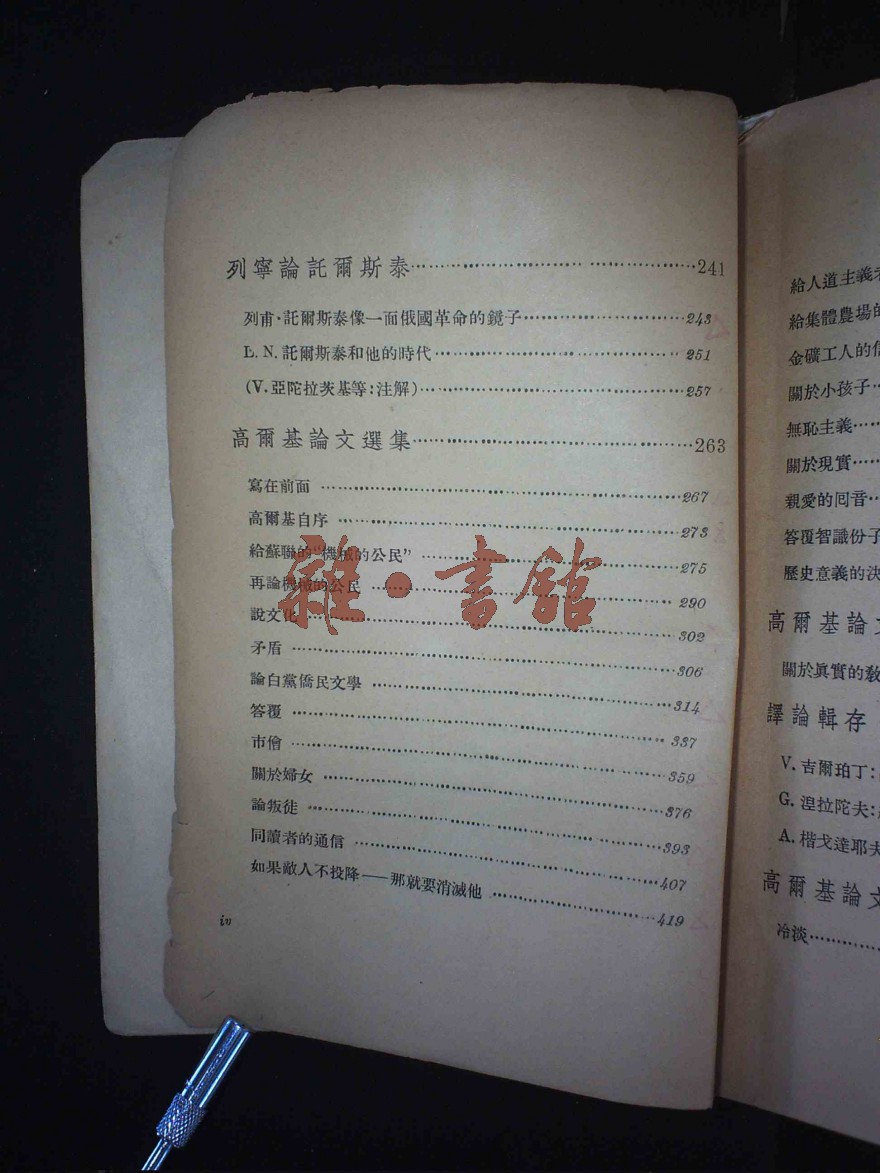 列寧論託爾斯泰……241
列甫·託爾斯泰像一面俄國革命的鏡子……243
L. N. 託爾斯泰和他的時代……251
(V. 亞陀拉茨基等：注解)……257
高爾基論文選集……263
寫在前面……267
高爾基自序……273
給蘇聯的“機械的公民”……275
再論機械的公民……290
說文化……302
矛盾……306
論白黨僑民文學……314
答覆……337
市儈……359
關於婦女……376
論叛徒……393
同讀者的通信……407
如果敵人不投降——那就要消滅他……419
iv
雜·書館
給人道主義者
給集體農場的
金礦工人的信
關於小孩子…
無恥主義…
關於現實…
親愛的囘音…
答覆智識份子
歷史意義的決
高爾基論文
關於眞實的敎
譯論輯存
V. 吉爾珀丁：
G. 湼拉陀夫：
A. 楷戈達耶夫
高爾基論文
冷淡……